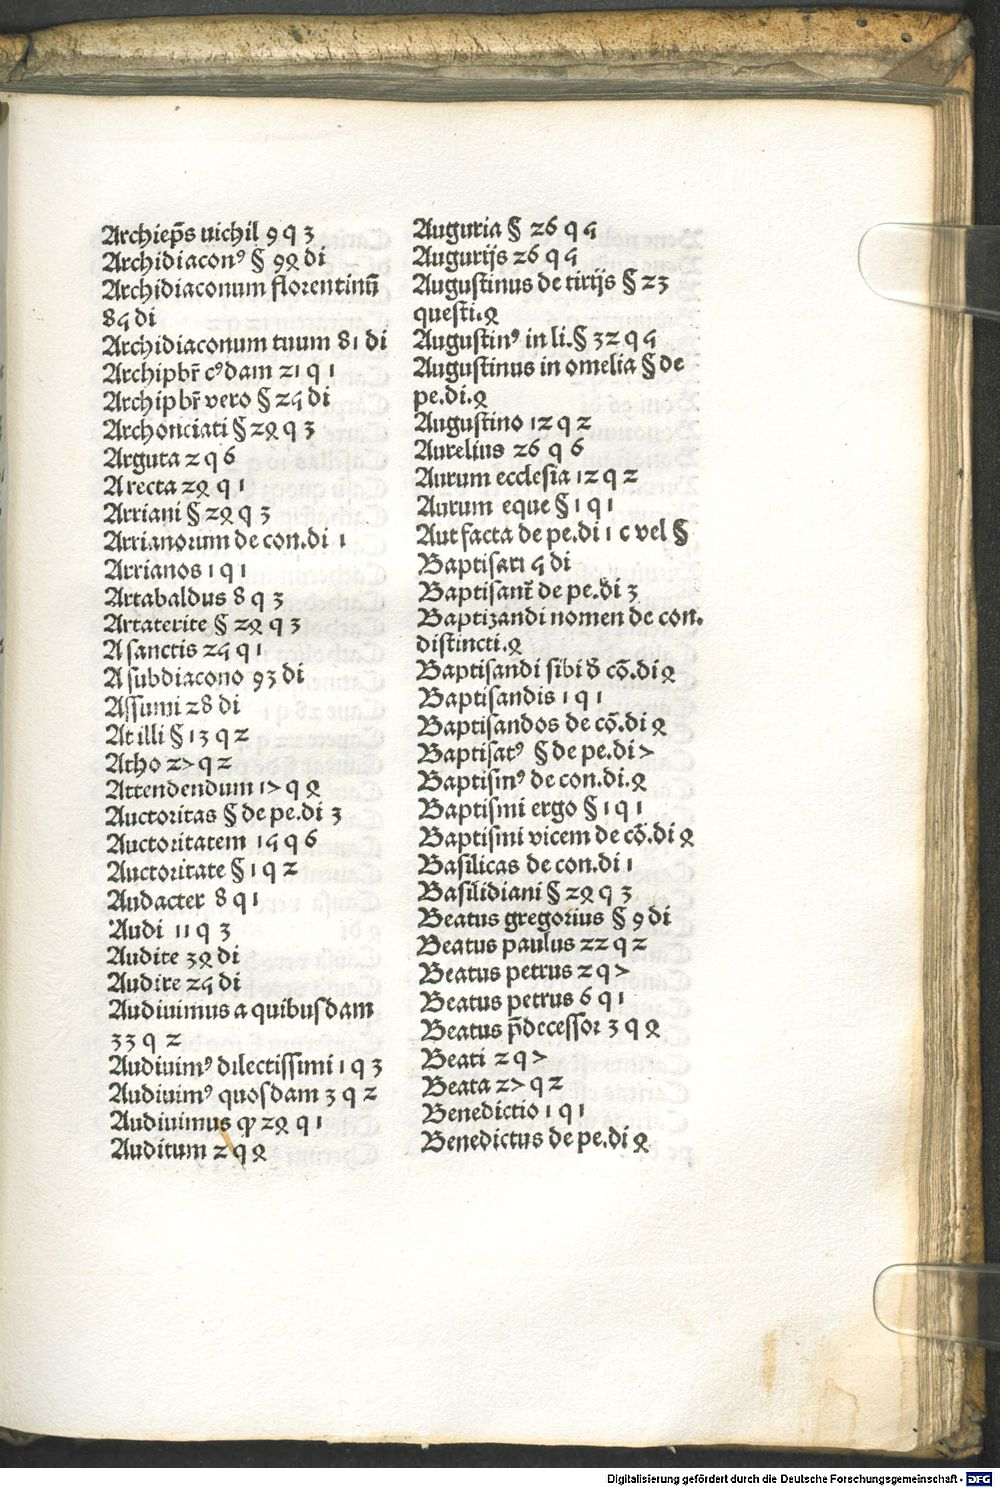 Archiep̄s nichil 9 q 3
Archidiaconꝰ § 94 di
Archidiaconum florentinū
85 di
Archidiaconum tuum 81 di
Archipbr̄ cꝰdam 21 q 1
Archipbr̄ vero § 25 di
Archonciati § 24 q 3
Arguta 2 q 6
A recta 24 q 1
Arriani § 24 q 3
Arrianorum de con.di 1
Arrianos 1 q 1
Artabaldus 8 q 3
Artaterite § 24 q 3
A sanctis 25 q 1
A subdiacono 93 di
Assumi 28 di
At illi § 13 q 2
Atho 27 q 2
Attendendum 17 q 4
Auctoritas § de pe.di 3
Auctoritatem 15 q 6
Auctoritate § 1 q 2
Audacter 8 q 1
Audi 11 q 3
Audite 34 di
Audire 25 di
Audiuimus a quibusdam
33 q 2
Audiuimꝰ dilectissimi 1 q 3
Audiuimꝰ quosdam 3 q 2
Audiuimus ꝙ 24 q 1
Auditum 2 q 4
Auguria § 26 q 5
Augurijs 26 q 5
Augustinus de tirijs § 23
questi.4
Augustinꝰ in li.§ 32 q 5
Augustinus in omelia § de
pe.di.4
Augustino 12 q 2
Aurelius 26 q 6
Aurum ecclesia 12 q 2
Aurum eque § 1 q 1
Aut facta de pe.di 1 c vel §
Baptisari 5 di
Baptisant̄ de pe.di 3
Baptizandi nomen de con.
distincti.4
Baptisandi sibi d̄ cō.di 4
Baptisandis 1 q 1
Baptisandos de cō.di 4
Baptisatꝰ § de pe.di 7
Baptismꝰ de con.di.4
Baptismi ergo § 1 q 1
Baptismi vicem de cō.di 4
Basilicas de con.di 1
Basilidiani § 24 q 3
Beatus gregorius § 9 di
Beatus paulus 22 q 2
Beatus petrus 2 q 7
Beatus petrus 6 q 1
Beatus p̄decessor 3 q 4
Beati 2 q 7
Beata 27 q 2
Benedictio 1 q 1
Benedictus de pe.di 4
Digitalisierung gefördert durch die Deutsche Forschungsgemeinschaft - DFG